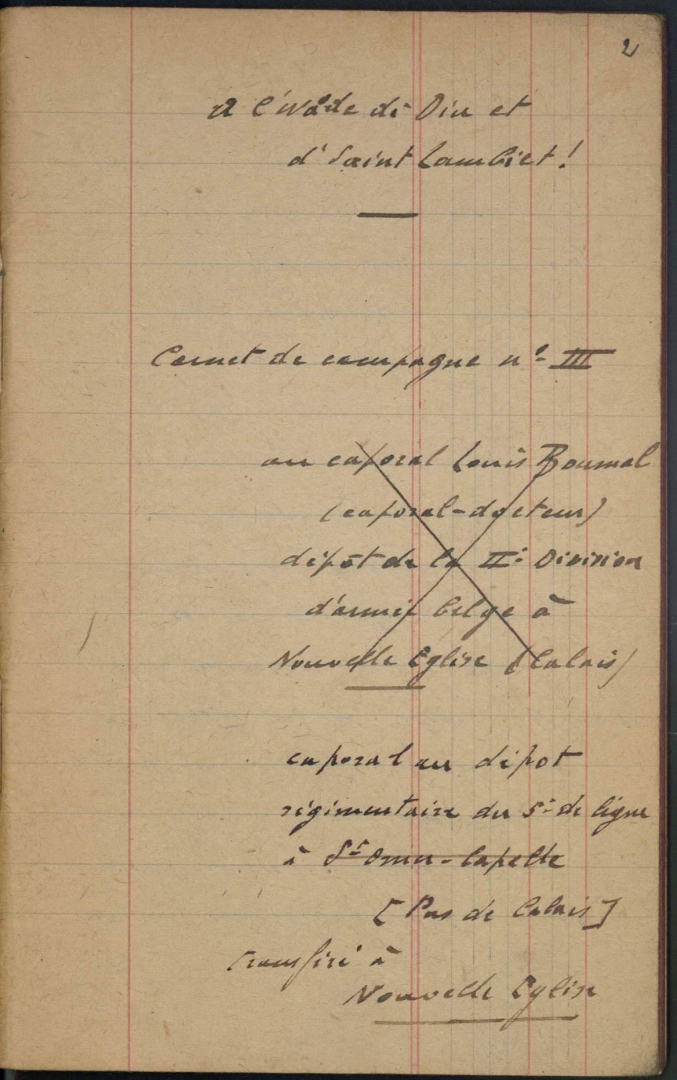 2
A l'aide de Dieu et
d'Saint Lambert !
Carnet de campagne n° III
au caporal Louis Boumal
(caporal-docteur)
dépôt de la II° Division
d'armée belge à
Nouvelle Eglise (Calais)
caporal au dépot
régimentaire du 5e de ligne
à St Omer-Capelle
[Pas de Calais]
transféré à
Nouvelle Eglise